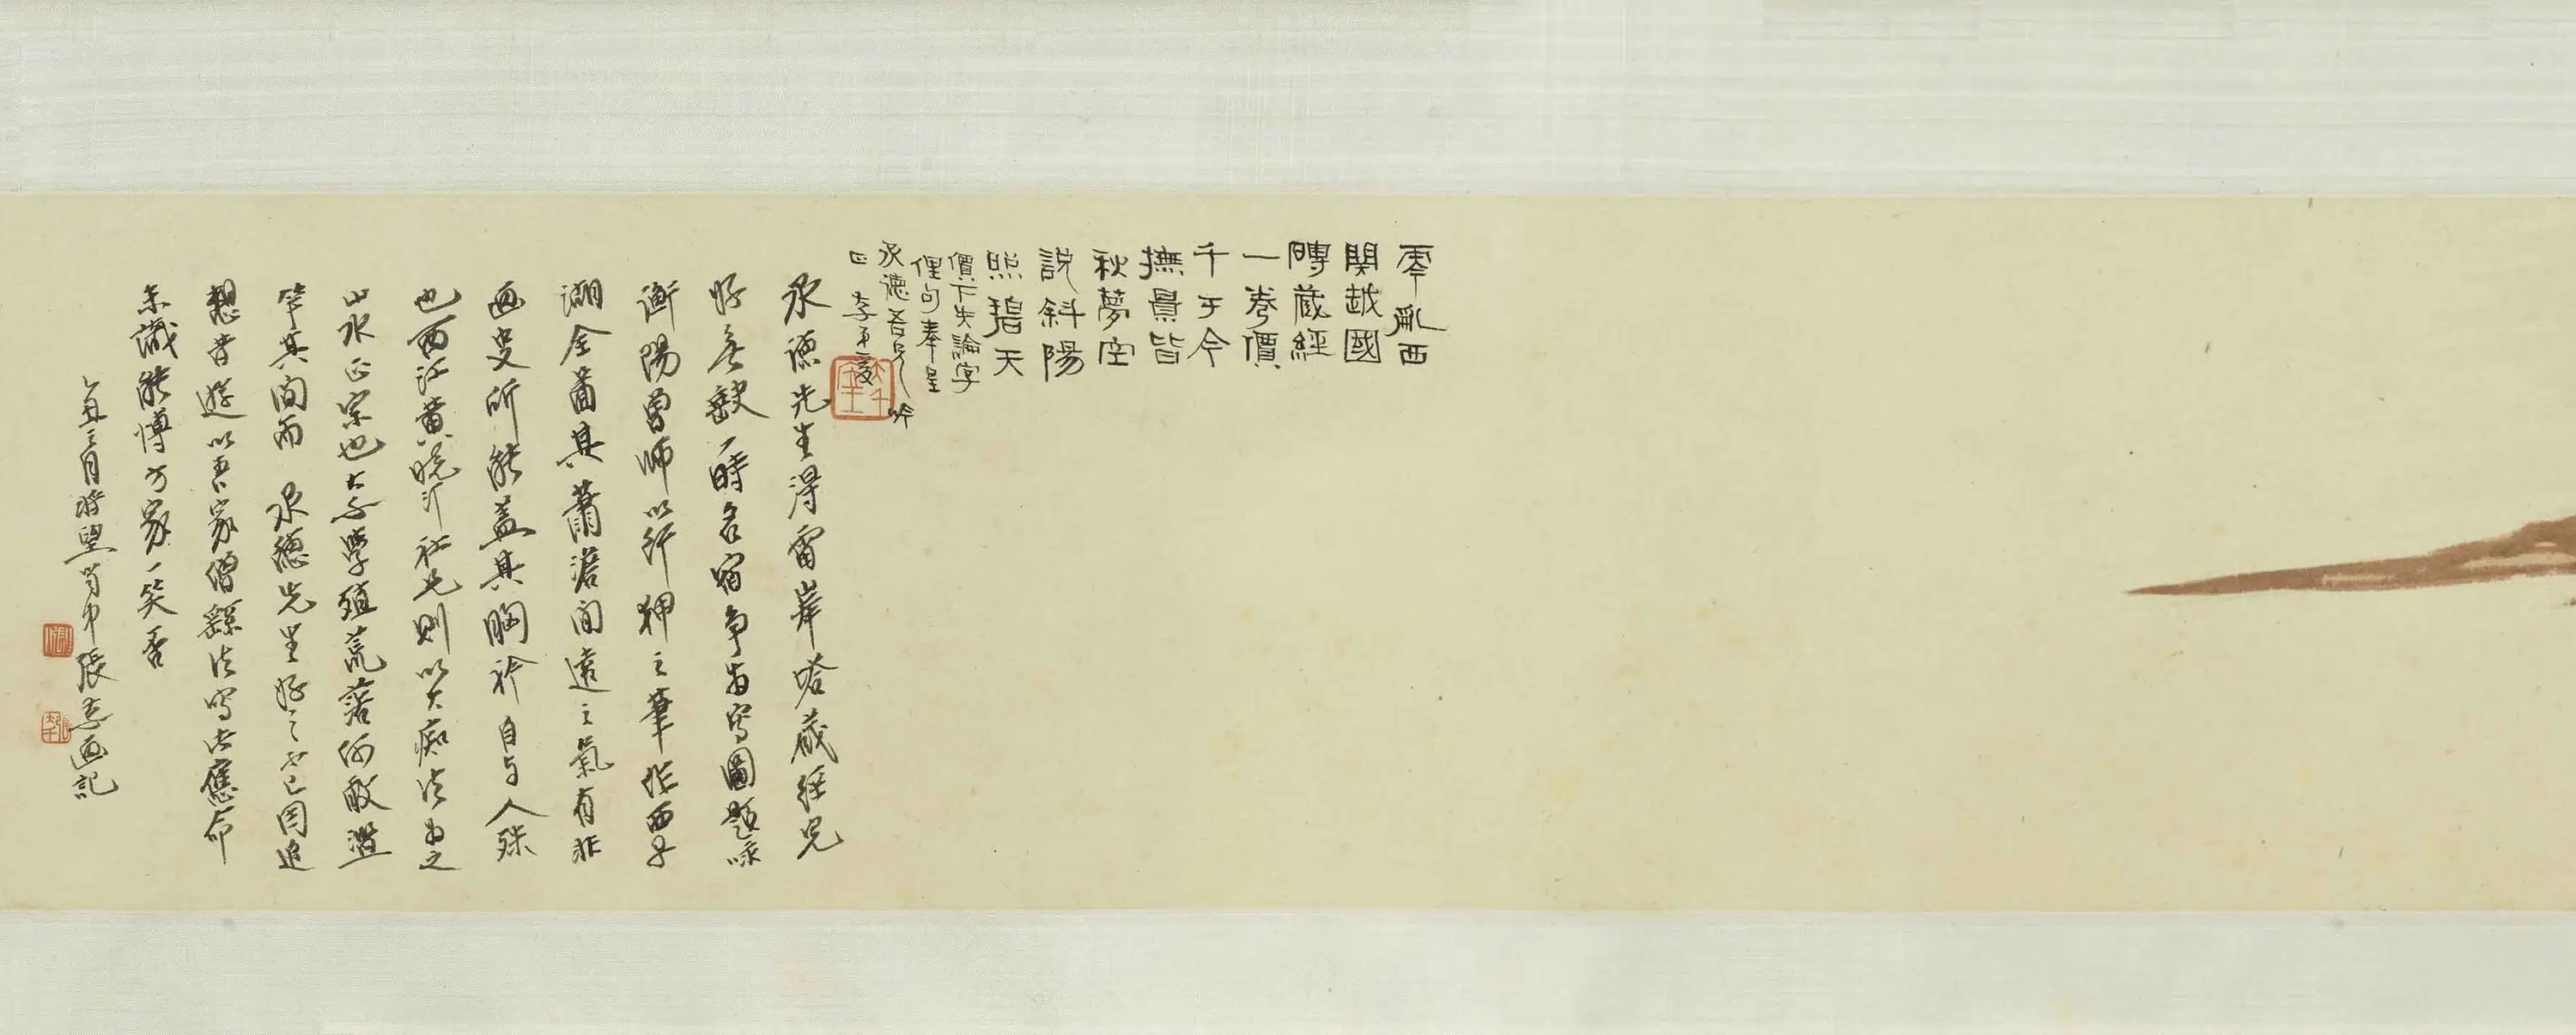 零亂西
關越國
磚藏經
一卷價
千于今
撫景皆
秋夢空
說斜陽
照碧天
價下失論字
俚句奉呈
承德吾兄吟
正 李
承德先生得雷峰塔藏經完
好無缺一時名宿爭為寫圖題咏
衡陽曾師以行狎之筆作西子
湖全圖其蕭澹閒遠之氣有非
畫史所能蓋其胸衿自与人殊
也西江黃曉汀社兄則以大痴法為之
山水正宗也大千學殖荒落何敢濫
竽其間而 承德先生好之不已因追
想昔遊以吾家僧繇法寫此應命
未識能博方家一笑否
乙丑三月將望 張爰画記